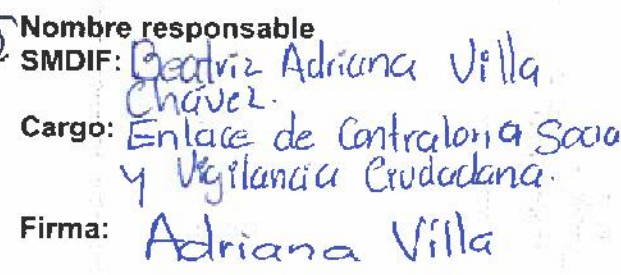 Nombre responsable
SMDIF: Beatriz Adriana Villa
Chávez.
Cargo: Enlace de Contraloria Socia
y Vigilancia Ciudadana.
Firma: Adriana Villa